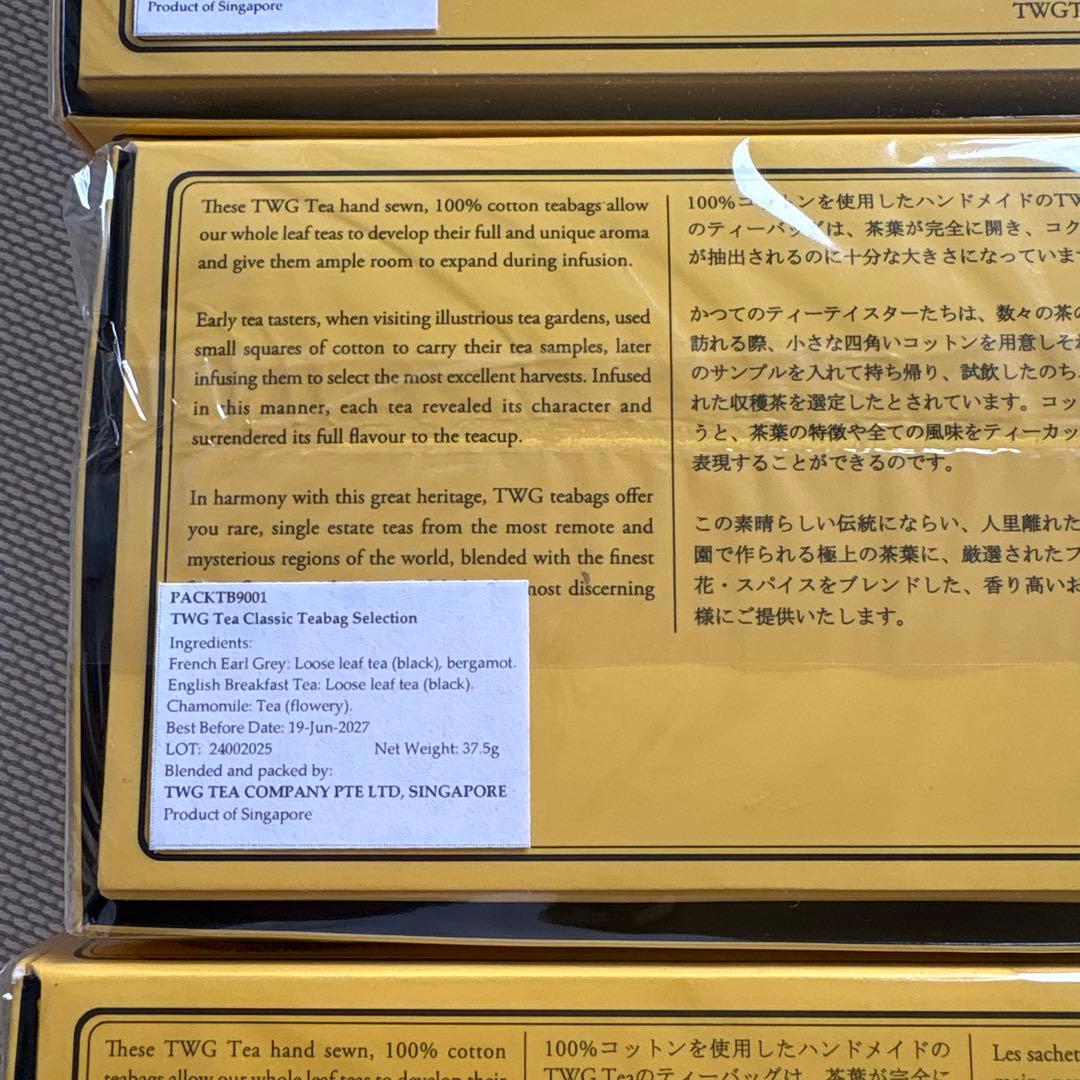 Product of Singapore
TWGT
These TWG Tea hand sewn, 100% cotton teabags allow
our whole leaf teas to develop their full and unique aroma
and give them ample room to expand during infusion.
Early tea tasters, when visiting illustrious tea gardens, used
small squares of cotton to carry their tea samples, later
infusing them to select the most excellent harvests. Infused
in this manner, each tea revealed its character and
surrendered its full flavour to the teacup.
In harmony with this great heritage, TWG teabags offer
you rare, single estate teas from the most remote and
mysterious regions of the world, blended with the finest
most discerning
PACKTB9001
TWG Tea Classic Teabag Selection
Ingredients:
French Earl Grey: Loose leaf tea (black), bergamot.
English Breakfast Tea: Loose leaf tea (black).
Chamomile: Tea (flowery).
Best Before Date: 19-Jun-2027
LOT: 24002025 Net Weight: 37.5g
Blended and packed by:
TWG TEA COMPANY PTE LTD, SINGAPORE
Product of Singapore
100%コットンを使用したハンドメイドのTW
のティーバッグは、茶葉が完全に開き、コク
が抽出されるのに十分な大きさになっていま
かつてのティーテイスターたちは、数々の茶の
訪れる際、小さな四角いコットンを用意しそ
のサンプルを入れて持ち帰り、試飲したのち、
れた収穫茶を選定したとされています。コッ
うと、茶葉の特徴や全ての風味をティーカッ
表現することができるのです。
この素晴らしい伝統にならい、人里離れた
園で作られる極上の茶葉に、厳選されたフ
花・スパイスをブレンドした、香り高いお
様にご提供いたします。
These TWG Tea hand sewn, 100% cotton
teabags allow our whole leaf teas to develop their
100%コットンを使用したハンドメイドの
TWG Teaのティーバッグは、茶葉が完全に
Les sachet